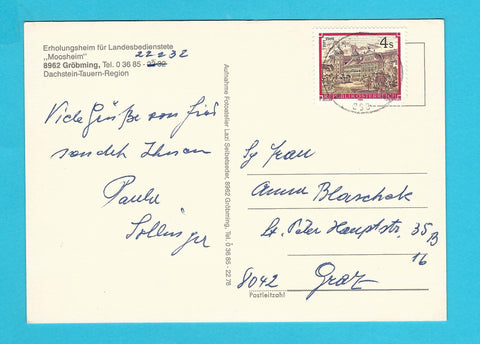 Erholungsheim für Landesbedienstete
„Moosheim" 22232
8962 Gröbming, Tel. 0 36 85 - 22 32
Dachstein-Tauern-Region
Viele Grüße von hier
sendet Ihnen
Paula
Sollinger
Aufnahme Fotoatelier Lazi Seibetseder, 8962 Gröbming, Tel. 0 36 85 - 22 78
4 s
REPUBLIK ÖSTERREICH
Sg Frau
Anna Blaschek
St. Peter Hauptstr. 35 B
16
8042 Graz
Postleitzahl